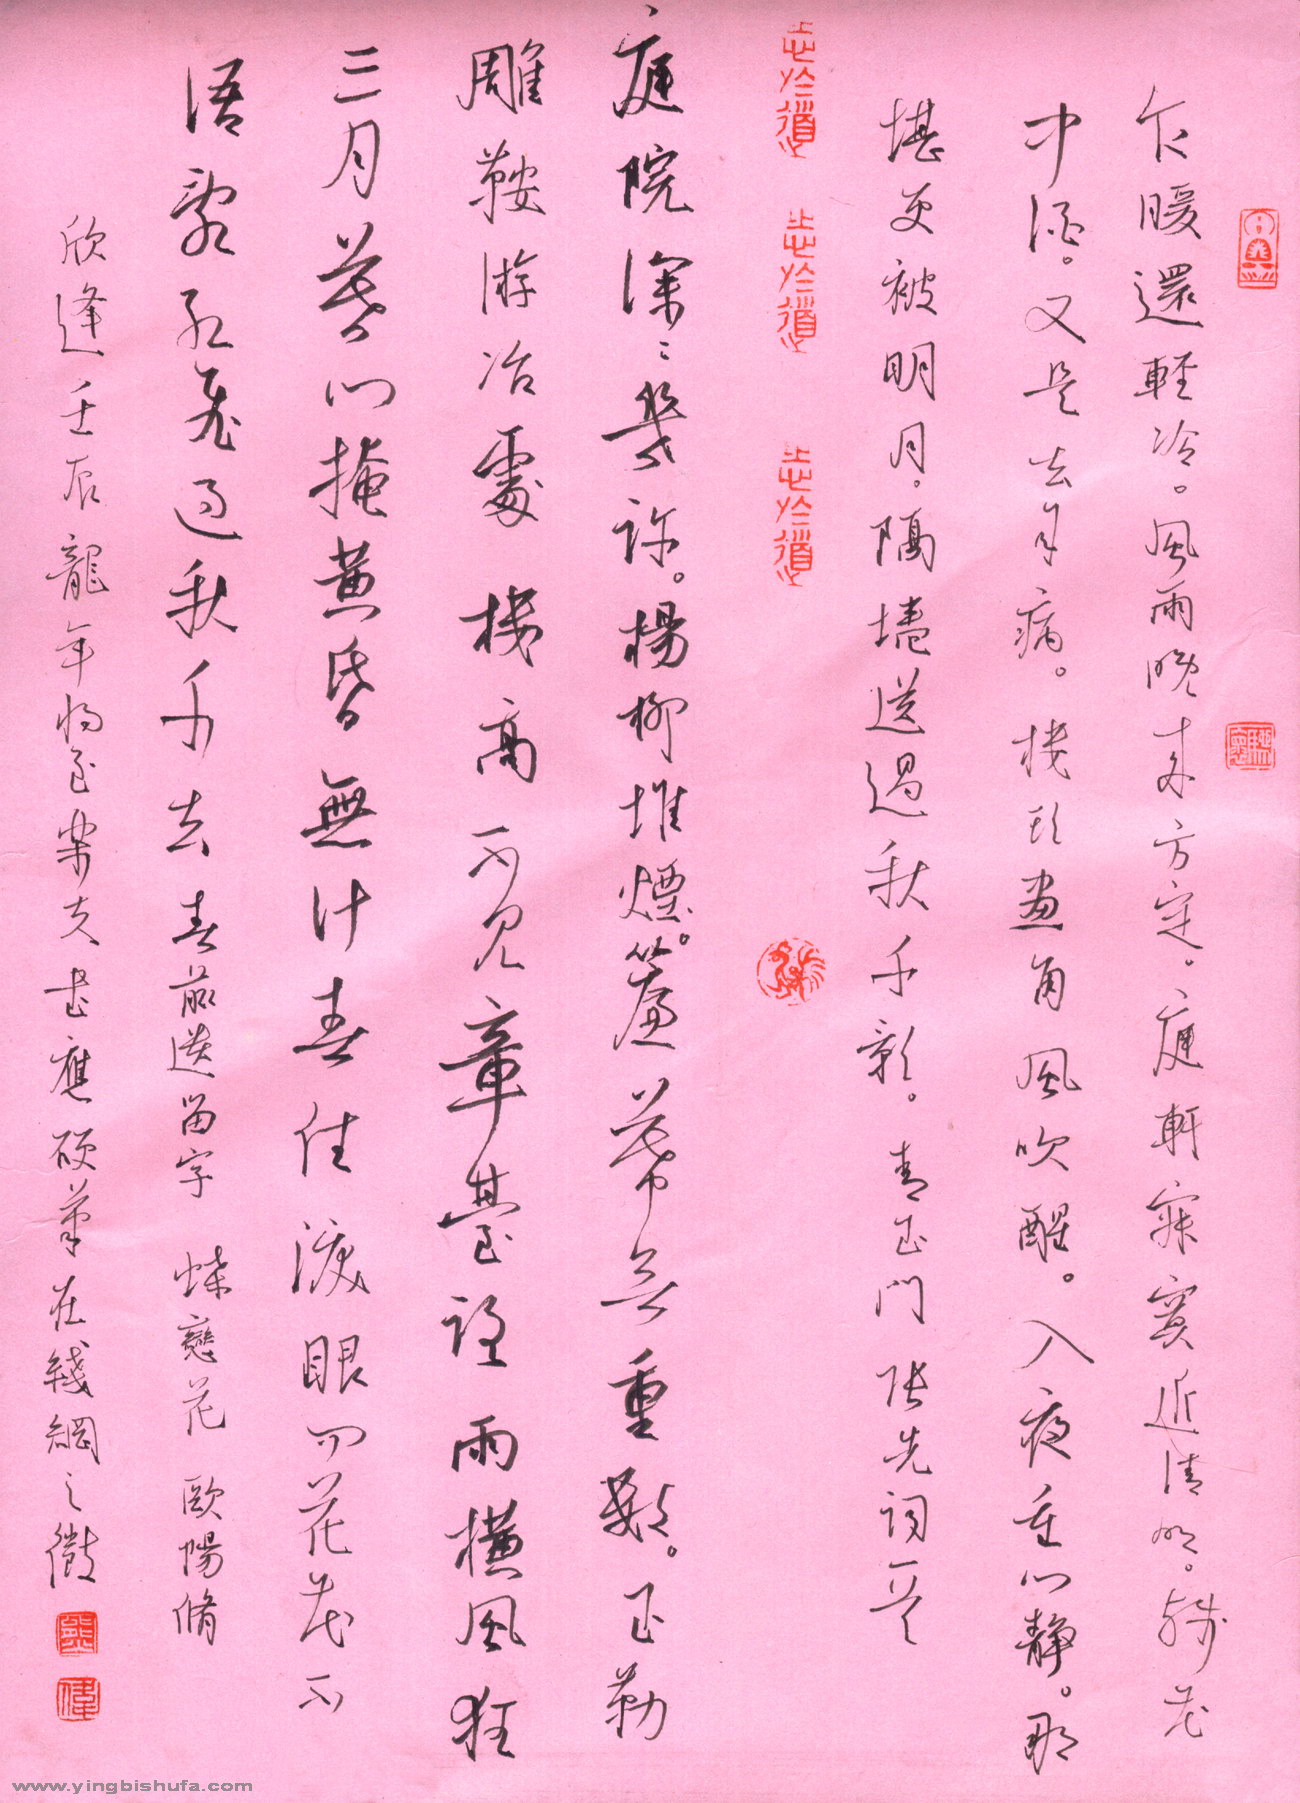 乍暖還輕冷。風雨晚來方定。庭軒寂寞近清明。殘花
中酒。又是去年病。樓頭畫角風吹醒。入夜重門靜。那
堪更被明月。隔墻送過秋千影。青門 張先詞一首
志於道
志於道
志於道
庭院深〻幾許。楊柳堆煙。簾幕無重數。玉勒
雕鞍游冶處 樓高不見章臺路 雨橫風狂
三月暮門掩黃昏無計春住淚眼問花花不
語亂紅飛過秋千去 春前遺留字 蝶戀花 歐陽脩
欣逢壬辰龍年將至樂夫書應硬筆在綫網之徵
熊
偉
www.yingbishufa.com